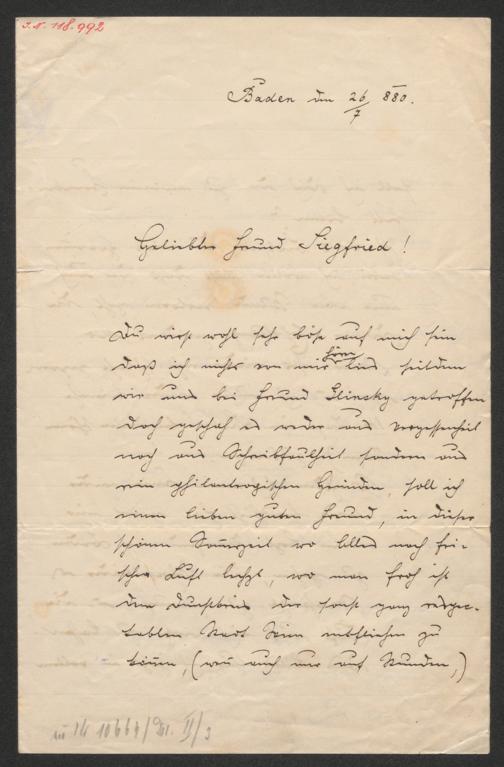 I.N. 118.992
Baden den 26/7 880.
Geliebter Freund Siegfried!
Du wirst wohl sehr böse auf mich sein
daß ich nichts von mir hören ließ seitdem
wir uns bei Freund Glinsky getroffen
doch geschah es weder aus Vergessenheit
noch aus Schreibfaulheit sondern aus
rein philantropischen Gründen, soll ich
einen lieben guten Freund, in dieser
schönen Somerzeit wo Alles nach fri-
scher Luft lechzt, wo man froh ist
dem Dunstkreis der sonst ganz respec-
tablen Stadt Wien entfliehen zu
könen, (wen auch nur auf Stunden,)